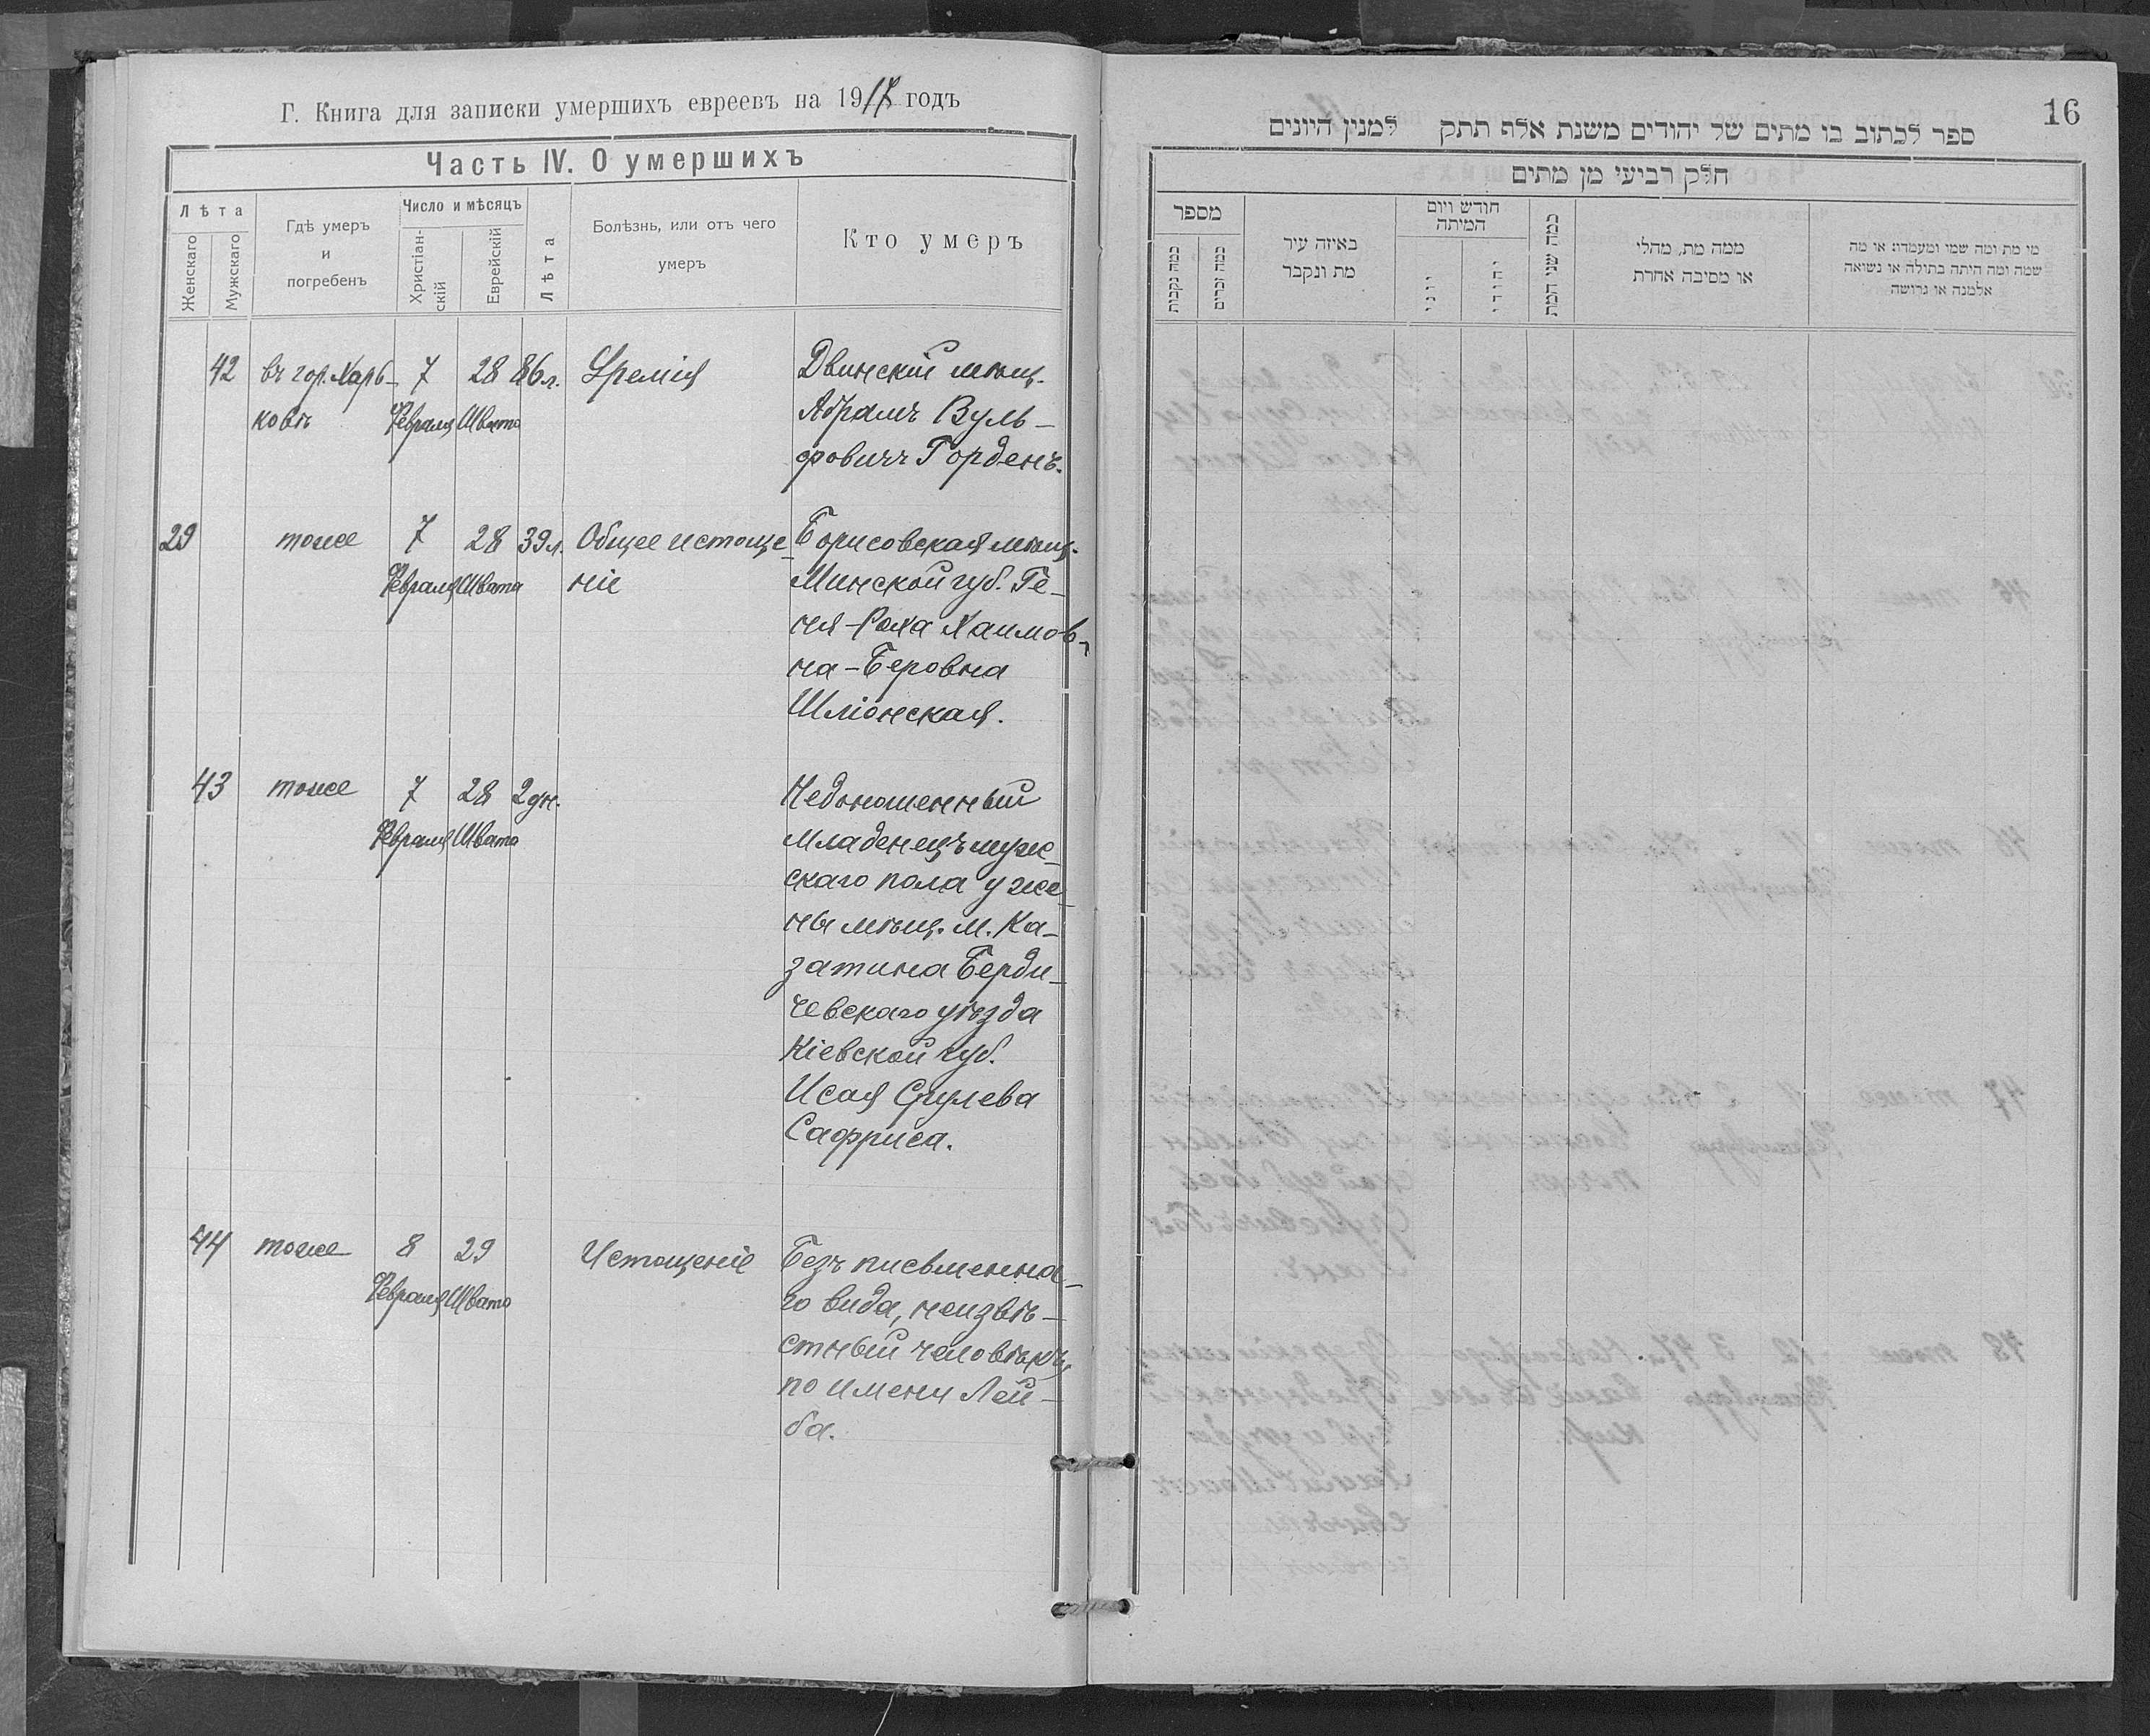 Г. Книга для записки умершихъ евреевъ на 1917 годъ
Часть IV. О умершихъ
Лѣта
Женскаго
Мужскаго
Гдѣ умеръ
и
погребенъ
Число и мѣсяцъ
Христіан-
скій
Еврейскій
Лѣта
Болѣзнь, или отъ чего
умеръ
Кто умеръ
42 въ гор. Харь- 7 28 86 л. Уремія Двинскій мѣщ.
ковѣ Февраля Швата Абрамъ Вуль-
фовичъ Горденъ.
29 тоже 7 28 39 л. Общее истоще- Борисовская мѣщ.
Февраля Швата ніе Минской губ. Ге-
ня-Роха Хаимов-
на-Беровна
Шліонская.
43 тоже 7 28 2 дн. Недоношенный
Февраля Швата младенецъ муж-
скаго пола у же-
ны мѣщ. м. Ка-
затина Берди-
чевскаго уѣзда
Кіевской губ.
Исая Срулева
Сафриса.
44 тоже 8 29 Истощеніе Безъ письменна-
Февраля Швата го вида, неизвѣ-
стный человѣкъ,
по имени Лей-
ба.
16
ספר לכתוב בו מתים של יהודים משנת אלף תתק למנין היונים
חלק רביעי מן מתים
מספר
כמה נקבות
כמה זכרים
באיזה עיר
מת ונקבר
חודש ויום
המיתה
יוני
יהודי
כמה שני המת
ממה מת, מחלי
או מסיבה אחרת
מי מת ומה שמו ומעמדו: או מה
שמה ומה היתה בתולה או נשואה
אלמנה או גרושה